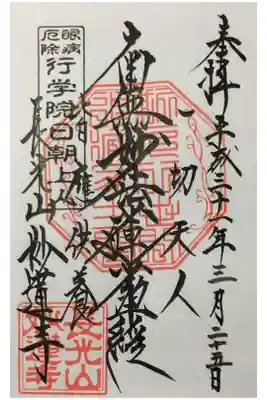 奉拝 平成三十一年三月二十五日
一切天人
南無妙法蓮華経
皆應供養
眼病
厄除
行学院日朝上人
長光山妙寺
長光山